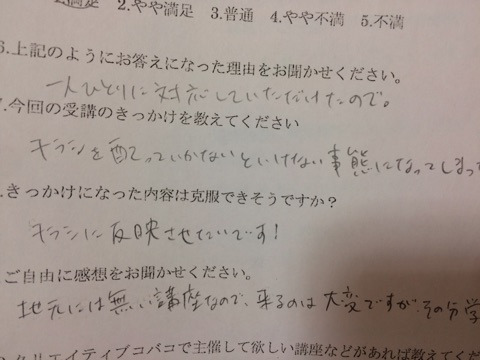 1.満足 2.やや満足 3.普通 4.やや不満 5.不満
6.上記のようにお答えになった理由をお聞かせください。
一人ひとりに対応していただけたので。
7.今回の受講のきっかけを教えてください
チラシを配っていかないといけない事態になってしまっ
.きっかけになった内容は克服できそうですか?
チラシに反映させたいです!
ご自由に感想をお聞かせください。
地元には無い講座なので、来るのは大変ですが、その分学
クリエイティブコバコで主催して欲しい講座などがあれば教えてくだ